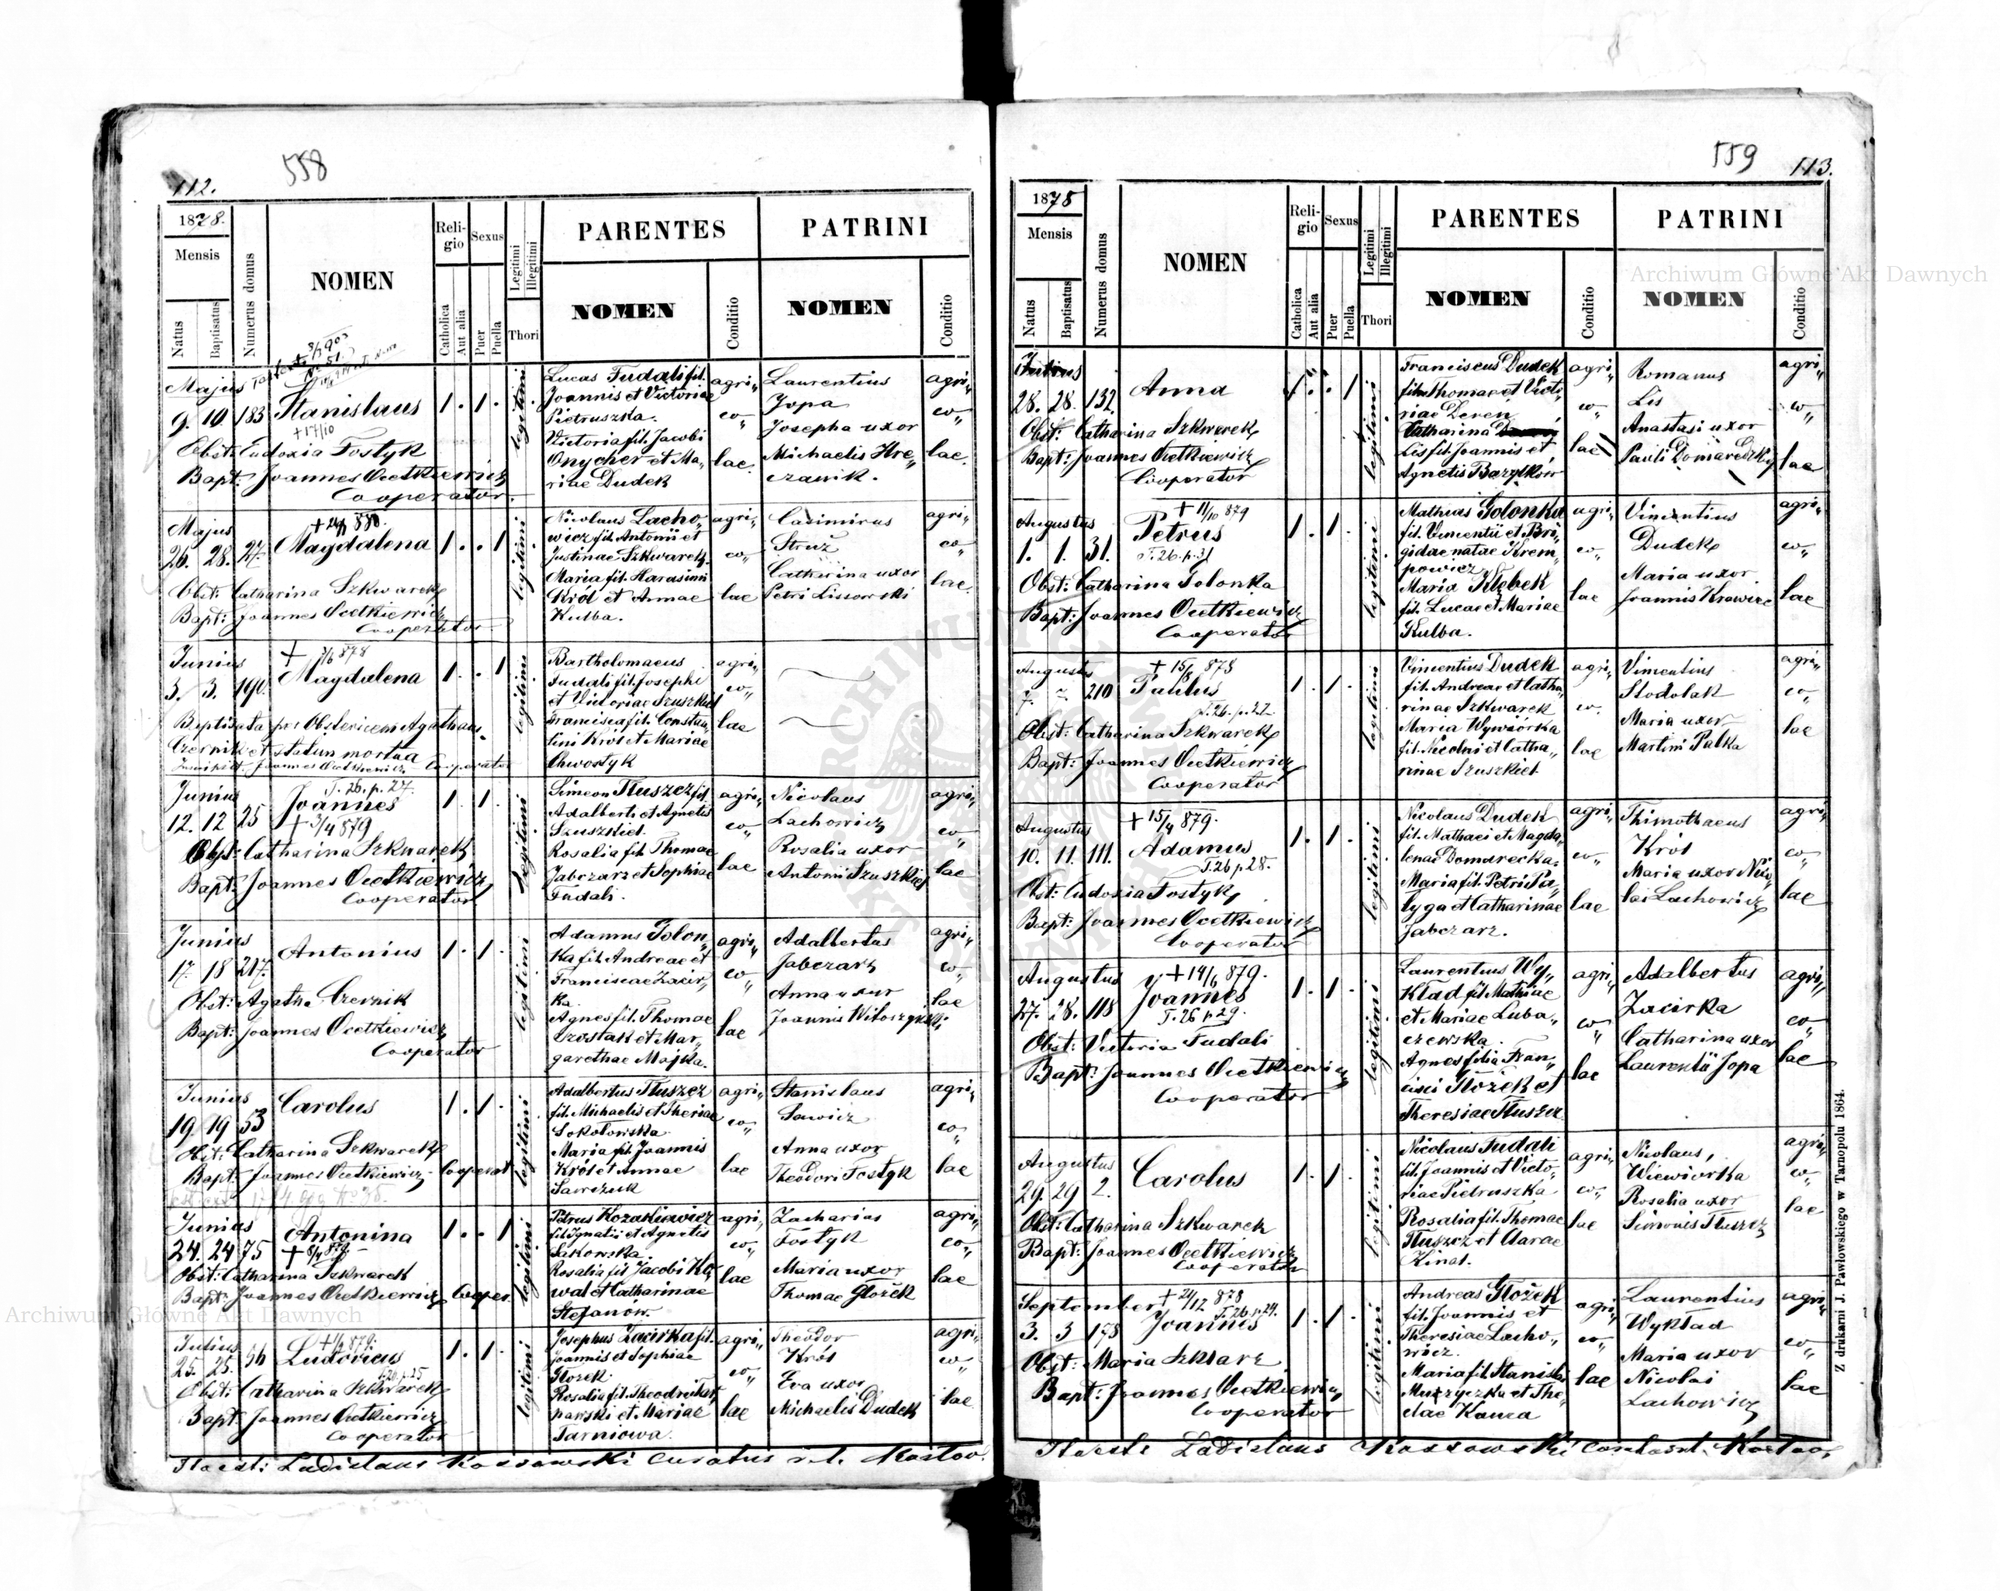 558
112.
1878.
Mensis
Natus
Baptisatus
Numerus domus
NOMEN
Religio
Catholica
Aut alia
Sexus
Puer
Puella
Legitimi
Illegitimi
Thori
PARENTES
NOMEN
Conditio
PATRINI
NOMEN
Conditio
Majus
9. 10. 183
Stanislaus
+ 17/10
1. 1.
legitimi
Obst: Eudoxia Tostyk
Bapt: Joannes Ocetkiewicz
Cooperator
Lucas Fudali fil.
Joannis et Victoriae
Pietruszka.
Victoria fil. Jacobi
Onycher et Ma,,
riae Dudek
agri,,
co,,
lae.
Laurentius
Jopa
Josepha uxor
Michaelis Hre,,
czanik.
agri,,
co,,
lae.
Majus
26. 28. 27.
Magdalena
1. . 1
legitimi
Obst: Catharina Szkwarek
Bapt: Joannes Ocetkiewicz
Cooperator
Nicolaus Lacho,,
wicz fil. Antonii et
Justinae Szkwarek.
Maria fil. Harasimi
Król et Annae
Kulba.
agri,,
co,,
lae
Casimirus
Struż
Catherina uxor
Petri Lissowski
agri,,
co,,
lae.
Junius
3. 3. 190.
+ 7/6 878
Magdalena
1. . 1
legitimi
Baptisata per Obstericem Agatham
Czernik et statim mortua
Joannes Ocetkiewicz Cooperator
Bartholomaeus
Fudali fil. Josephi
et Victoriae Szuszkiet
Francisca fil. Constan,,
tini Król et Mariae
Chwostyk
agri,,
co,,
lae
Junius
12. 12 25
T. 26. p. 27.
Joannes
+ 3/4 879
1. 1.
legitimi
Obst: Catharina Szkwarek
Bapt: Joannes Ocetkiewicz
Cooperator
Simeon Tłuszcz fil.
Adalberti et Agnetis
Szuszkiet.
Rosalia fil. Thomae
Jabczarz et Sophiae
Fudali.
agri,,
co,,
lae
Nicolaus
Lachowicz
Rosalia uxor
Antonii Szuszkiet
agri,,
co,,
lae
Junius
17. 18 217.
Antonius
1. 1.
legitimi
Obst: Agatha Czernik
Bapt: Joannes Ocetkiewicz
Cooperator
Adamus Golon,,
ka fil. Andreae et
Franciscae Zacir,,
ka.
Agnes fil. Thomae
Szostak et Mar,,
garethae Majka.
agri,,
co,,
lae
Adalbertus
Jabczarz
Anna uxor
Joannis
agri,,
co,,
lae
Junius
19. 19 53
Carolus
1. 1.
legitimi
Obst: Catharina Szkwarek
Bapt: Joannes Ocetkiewicz Cooperat.
Adalbertus Tłuszcz
fil. Michaelis et Theriae
Sokołowska.
Maria fil. Joannis
Król et Annae
Sawczuk
agri,,
co,,
lae
Stanislaus
Sawicz
Anna uxor
Theodori Tostyk
agri,,
co,,
lae
Junius
24. 24 75
Antonina
1. . 1
legitimi
Obst: Catharina Szkwarek
Bapt: Joannes Ocetkiewicz Cooper.
Petrus Kozakiewicz
fil. Ignatii et Agnetis
Rosalia fil. Jacobi Ko,,
wal et Catharinae
Stefanów.
agri,,
co,,
lae
Zacharias
Tostyk
Maria uxor
Thomae Głożek
agri,,
co,,
lae
Julius
25. 25.
Ludovicus
1. 1.
legitimi
Obst: Catharina Szkwarek
Bapt: Joannes Ocetkiewicz
Cooperator
Josephus Zacirka fil.
Joannis et Sophiae
Głożek
Rosalia fil. Theodri
et Mariae
Tarniowa.
agri,,
co,,
lae
Theodor
Król
Eva uxor
Michaelis Dudek
agri,,
co,,
lae
Ladislaus Kossowski curatus r. l.
559
113.
1878
Mensis
Natus
Baptisatus
Numerus domus
NOMEN
Religio
Catholica
Aut alia
Sexus
Puer
Puella
Legitimi
Illegitimi
Thori
PARENTES
NOMEN
Conditio
PATRINI
NOMEN
Conditio
Julius
28. 28. 132
Anna
legitimi
Obst: Catharina Szkwarek
Bapt: Joannes Ocetkiewicz
Cooperator
Franciscus Dudek
fil. Thomae et Victo,,
riae Deren
Catharina
Lis fil. Joannis et
Agnetis Bazylków
agri,,
co,,
lae
Romanus
Lis
Anastasi uxor
Pauli Domareczky
agri,,
co,,
lae
Augustus
1. 1. 31.
+ 11/10 879
Petrus
T. 26. p. 31
1. 1.
legitimi
Obst: Catharina Golonka
Bapt: Joannes Ocetkiewicz
Cooperator
Mathias Golonka
fil. Vincentii et Bri,,
gidae natae Krem,,
powicz
Maria Klebek
fil. Lucae et Mariae
Kulba.
agri,,
co,,
lae
Vincentius
Dudek
Maria uxor
Joannis Krawiec
agri,,
co,,
lae
Augusts
7. 7. 210
+ 15/8 878
Paulus
T. 26. p. 27
1. 1.
legitimi
Obst: Catharina Szkwarek
Bapt: Joannes Ocetkiewicz
Cooperator
Vincentius Dudek
fil. Andreae et Catha,,
rinae Szkwarek
Maria Wywiórka
fil. Nicolai et Catha,,
rinae Szuszkiet.
agri,,
co.
lae
Vincentius
Stodolak
Maria uxor
Martini Pałka
agri,,
co,,
lae
Augustus
10. 11. 111.
+ 15/4 879.
Adamus
T. 26 p 28.
1. 1.
legitimi
Obst: Eudoxia Tostyk
Bapt: Joannes Ocetkiewicz
Cooperator
Nicolaus Dudek
fil. Mathaei et Magda,,
lenae Domarecka.
Maria fil. Petri Pa,,
tyga et Catharinae
Jabczarz.
agri,,
co,,
lae
Thimothaeus
Król
Maria uxor Nico,,
lai Lachowicz
agri,,
co,,
lae
Augustus
27. 28. 118
+ 14/6 879.
Joannes
T. 26 p. 29.
1. 1.
legitimi
Obst: Victoria Fudali
Bapt: Joannes Ocetkiewicz
Cooperator
Laurentius Wy,,
kład fil. Mathiae
et Mariae Luba,,
czewska.
Agnes filia Fran,,
cisci Głożek et
Theresiae Tłuszcz
agri,,
co,,
lae
Adalbertus
Zacirka
Catharina uxor
Laurentii Jopa
agri,,
co,,
lae
Augustus
29. 29 2.
Carolus
1. 1.
legitimi
Obst: Catharina Szkwarek
Bapt: Joannes Ocetkiewicz
Cooperator
Nicolaus Fudali
fil. Joannis et Victo,,
riae Pietruszka
Rosalia fil. Thomae
Tłuszcz et Clarae
Kinal.
agri,,
co,,
lae
Nicolaus
Wiewiórka
Rosalia uxor
Simonis Tłuszcz
agri,,
co,,
lae
September
3. 3 178
+ 24/12 878
T. 26. p. 24.
Joannes
1. 1.
legitimi
Obst: Maria Szklarz
Bapt: Joannes Ocetkiewicz
Cooperator
Andreas Głożek
fil. Joannis et
Theresiae Lacho,,
wicz.
Maria fil. Stanislai
Muzyczka et The,,
clae Kawa
agri,,
co,,
lae
Laurentius
Wykład
Maria uxor
Nicolai
Lachowicz
agri,,
co,,
lae
Ladislaus Kossowski
Z drukarni J. Pawłowskiego w Tarnopolu 1864.
Archiwum Główne Akt Dawnych
Archiwum Główne Akt Dawnych